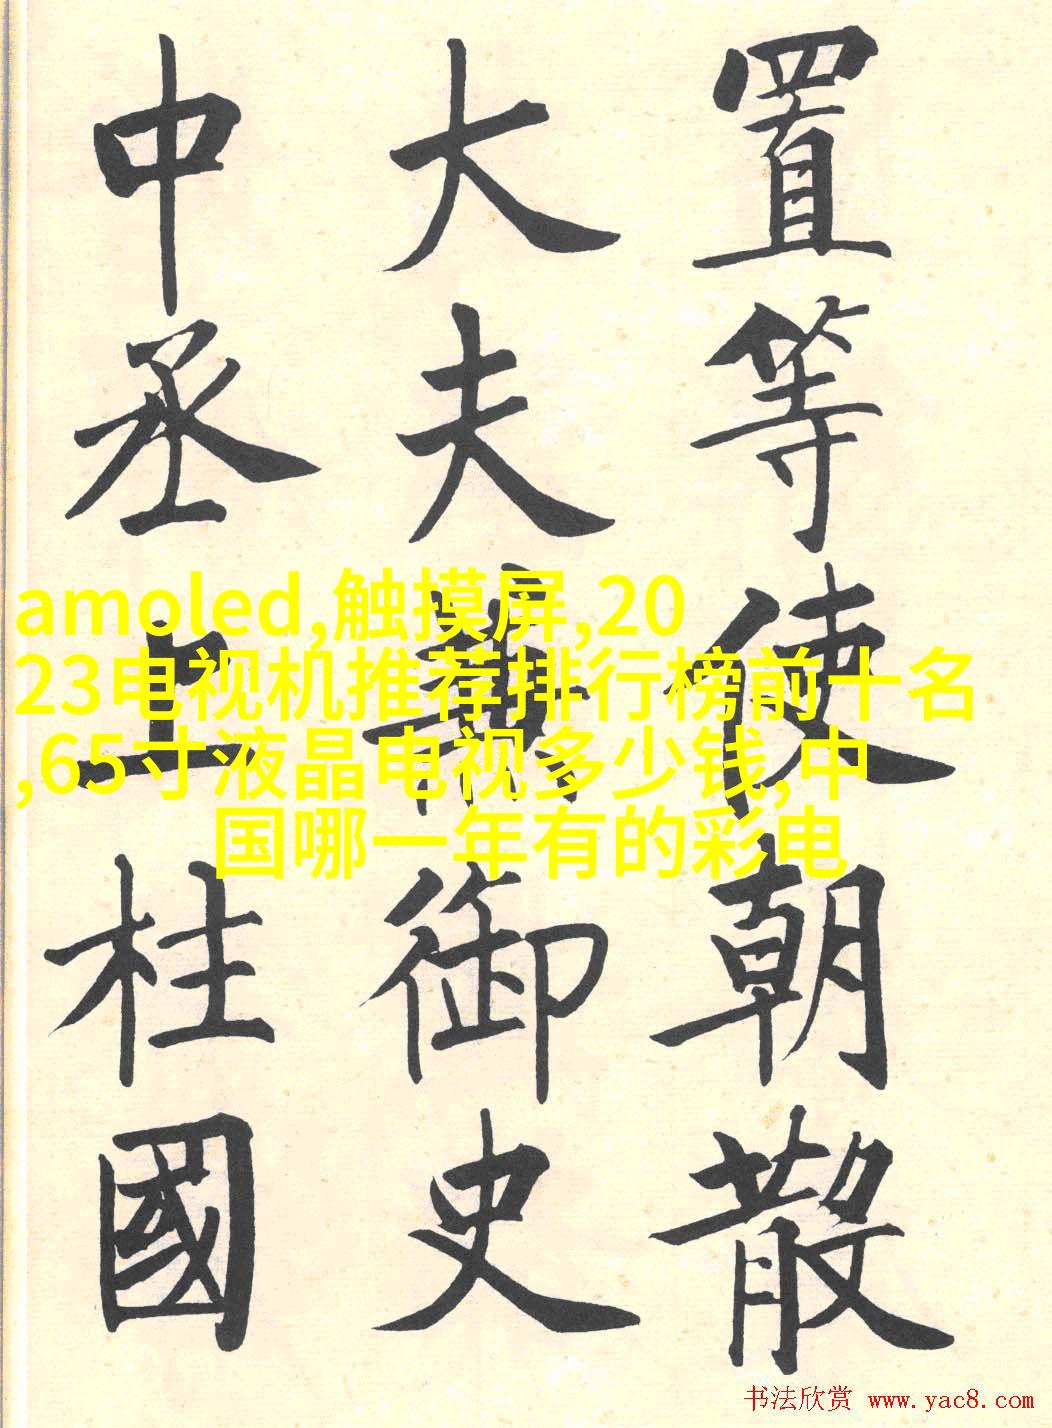 置等使朝散
大夫護御史
中丞上柱國
amoled,触摸屏,20
23电视机推荐排行榜前十名
,65寸液晶电视多少钱,中
国哪一年有的彩电
书法欣赏 www.yac8.com